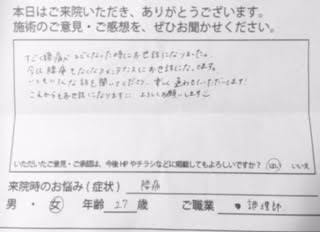 本日はご来院いただき、ありがとうございます。
施術のご意見・ご感想を、ぜひお聞かせください。
すごく腰痛がひどくなった時にお世話になりました。
今は腰痛もなくなりメンテナンスにお世話になってます。
いつもいろんな話を聞いてくださり、楽しく通わせていただいてます!
これからもお世話になりますが、よろしくお願いします
いただいたご意見・ご感想は、今後HPやチラシなどに掲載してもよろしいですか? はい いいえ
来院時のお悩み(症状) 腰痛
男・女 年齢 27 歳 ご職業 調理師